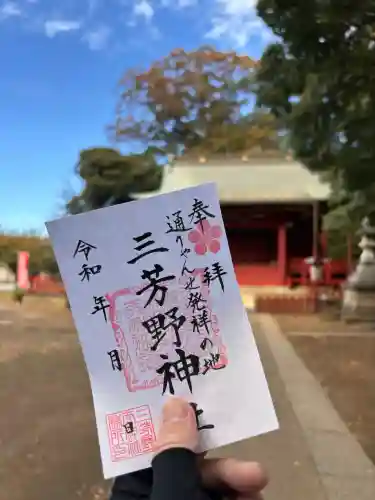 奉拝
通りゃんせ発祥の地
三芳野神社
令和 年 月 日